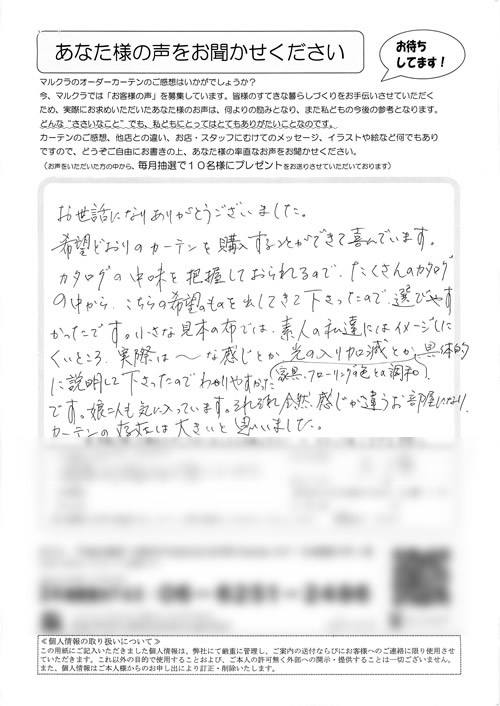 あなた様の声をお聞かせください
お待ち
してます!
マルクラのオーダーカーテンのご感想はいかがでしょうか?
今、マルクラでは「お客様の声」を募集しています。皆様のすてきな暮らしづくりをお手伝いさせていただく
ため、実際にお求めいただいたあなた様のお声は、何よりの励みとなり、また私どもの今後の参考となります。
どんな“ささいなこと”でも、私どもにとってはとてもありがたいことなのです。
カーテンのご感想、他店との違い、お店・スタッフにむけてのメッセージ、イラストや絵など何でもあり
ですので、どうぞご自由にお書きの上、あなた様の率直なお声をお聞かせください。
(お声をいただいた方の中から、毎月抽選で10名様にプレゼントをお送りさせていただいております)
お世話になりありがとうございました。
希望どおりのカーテンを購入することができて喜んでいます。
カタログの中味を把握しておられるので、たくさんのカタログ
の中から、こちらの希望のものを出してきて下さったので、選びやす
かったです。小さな見本の布では、素人の私達にはイメージしに
くいところ、実際は〜な感じとか、光の入り加減とか、具体的
に説明して下さったのでわかりやすかった
家具、フローリングの色との調和
です。娘二人も気に入っています。それぞれ全然感じが違うお部屋になり、
カーテンの存在は大きいと思いました。
06-6251-2486
≪個人情報の取り扱いについて≫
この用紙にご記入いただきました個人情報は、弊社にて厳重に管理し、ご案内の送付ならびにお客様へのご連絡に限り使用させ
ていただきます。これ以外の目的で使用することおよび、ご本人の許可無く外部への開示・提供することは一切ございません。
また、個人情報はご本人様からのお申し出により訂正・削除いたします。